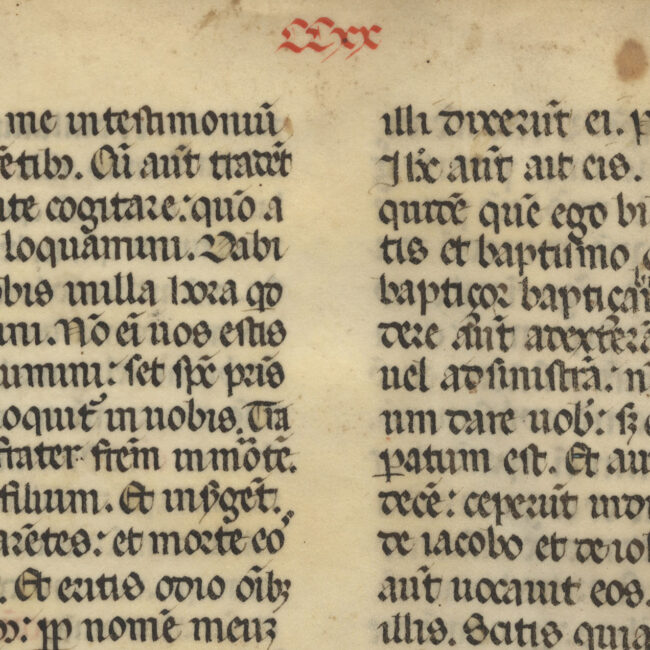 CCxx
me in testimoniū
gētibꝫ. Cū aūt tradēt
ite cogitare: quō a
loquamini. Dabi
obis in illa hora qd
ini. Nō ei uos estis
imini: set spc̄ pr̄is
loquit᷑ in uobis. Tra
frater frēm in mōtē.
filium. Et insᵹgēt.
arētes: et morte eo
. Et eritis odio oībꝫ
: ꝓp nomē meuꝫ
illi dixerūt ei. p
Ihc̄ aūt ait eis.
quidē quē ego bi
tis et baptismo
baptiçor baptiçam
dere aūt adextera
uel adsinistrā: n
um dare uob̄: sꝫ
patum est. Et au
decē: ceperūt indi
de iacobo et de io
aūt uocauit eos.
illis. Scitis quia